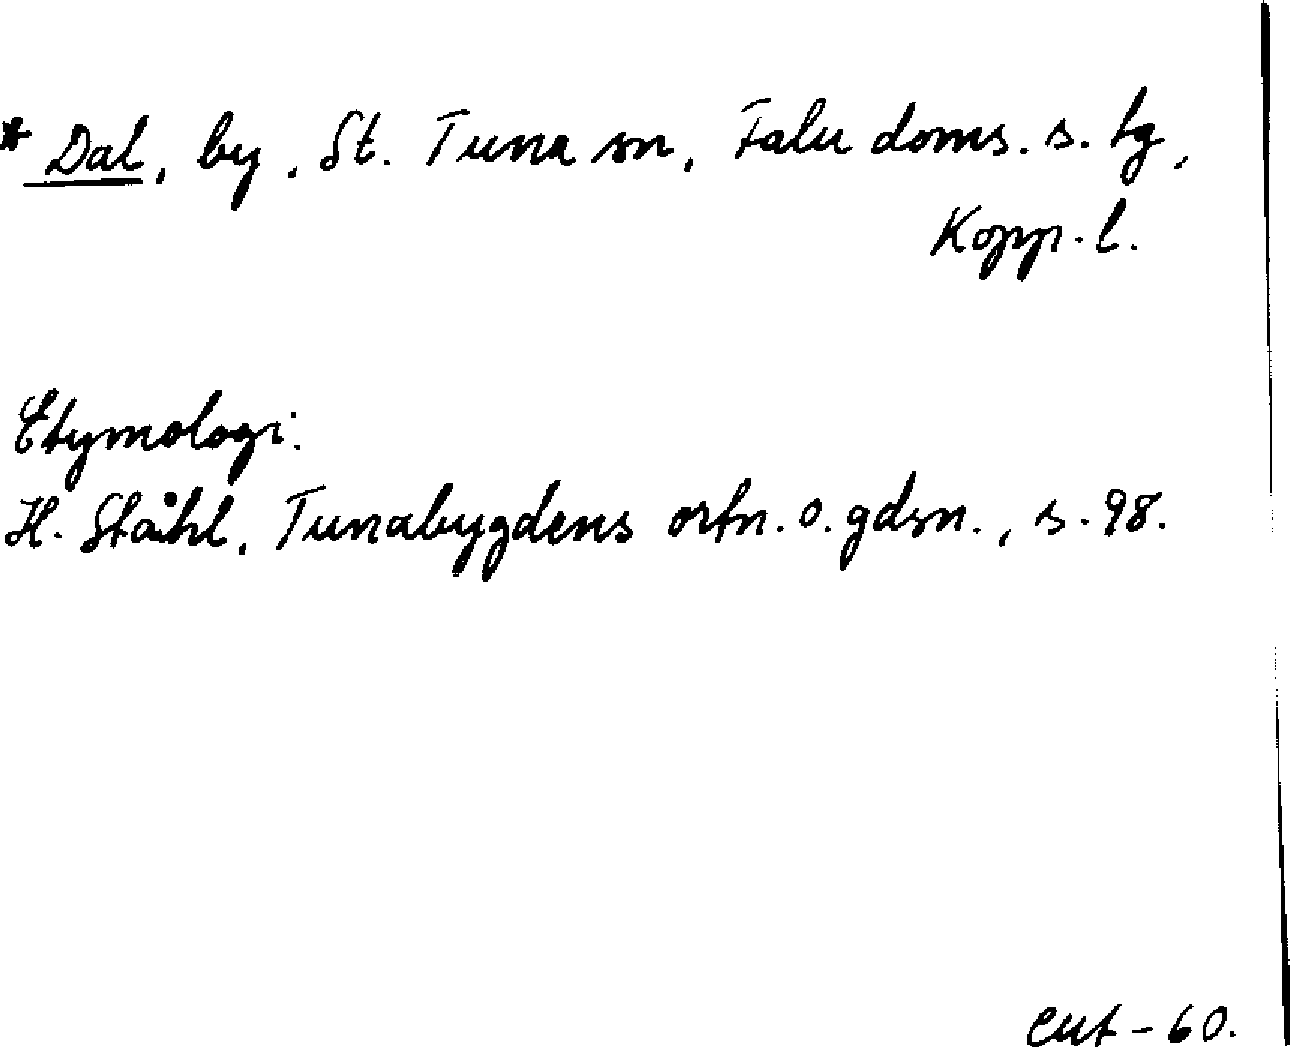 * Dal, by, St. Tuna sn, Falu doms. s. tg,
Kopp. l.
Etymologi:
H. Ståhl, Tunabygdens ortn. o. gdsn., s. 98.
Eut - 60.